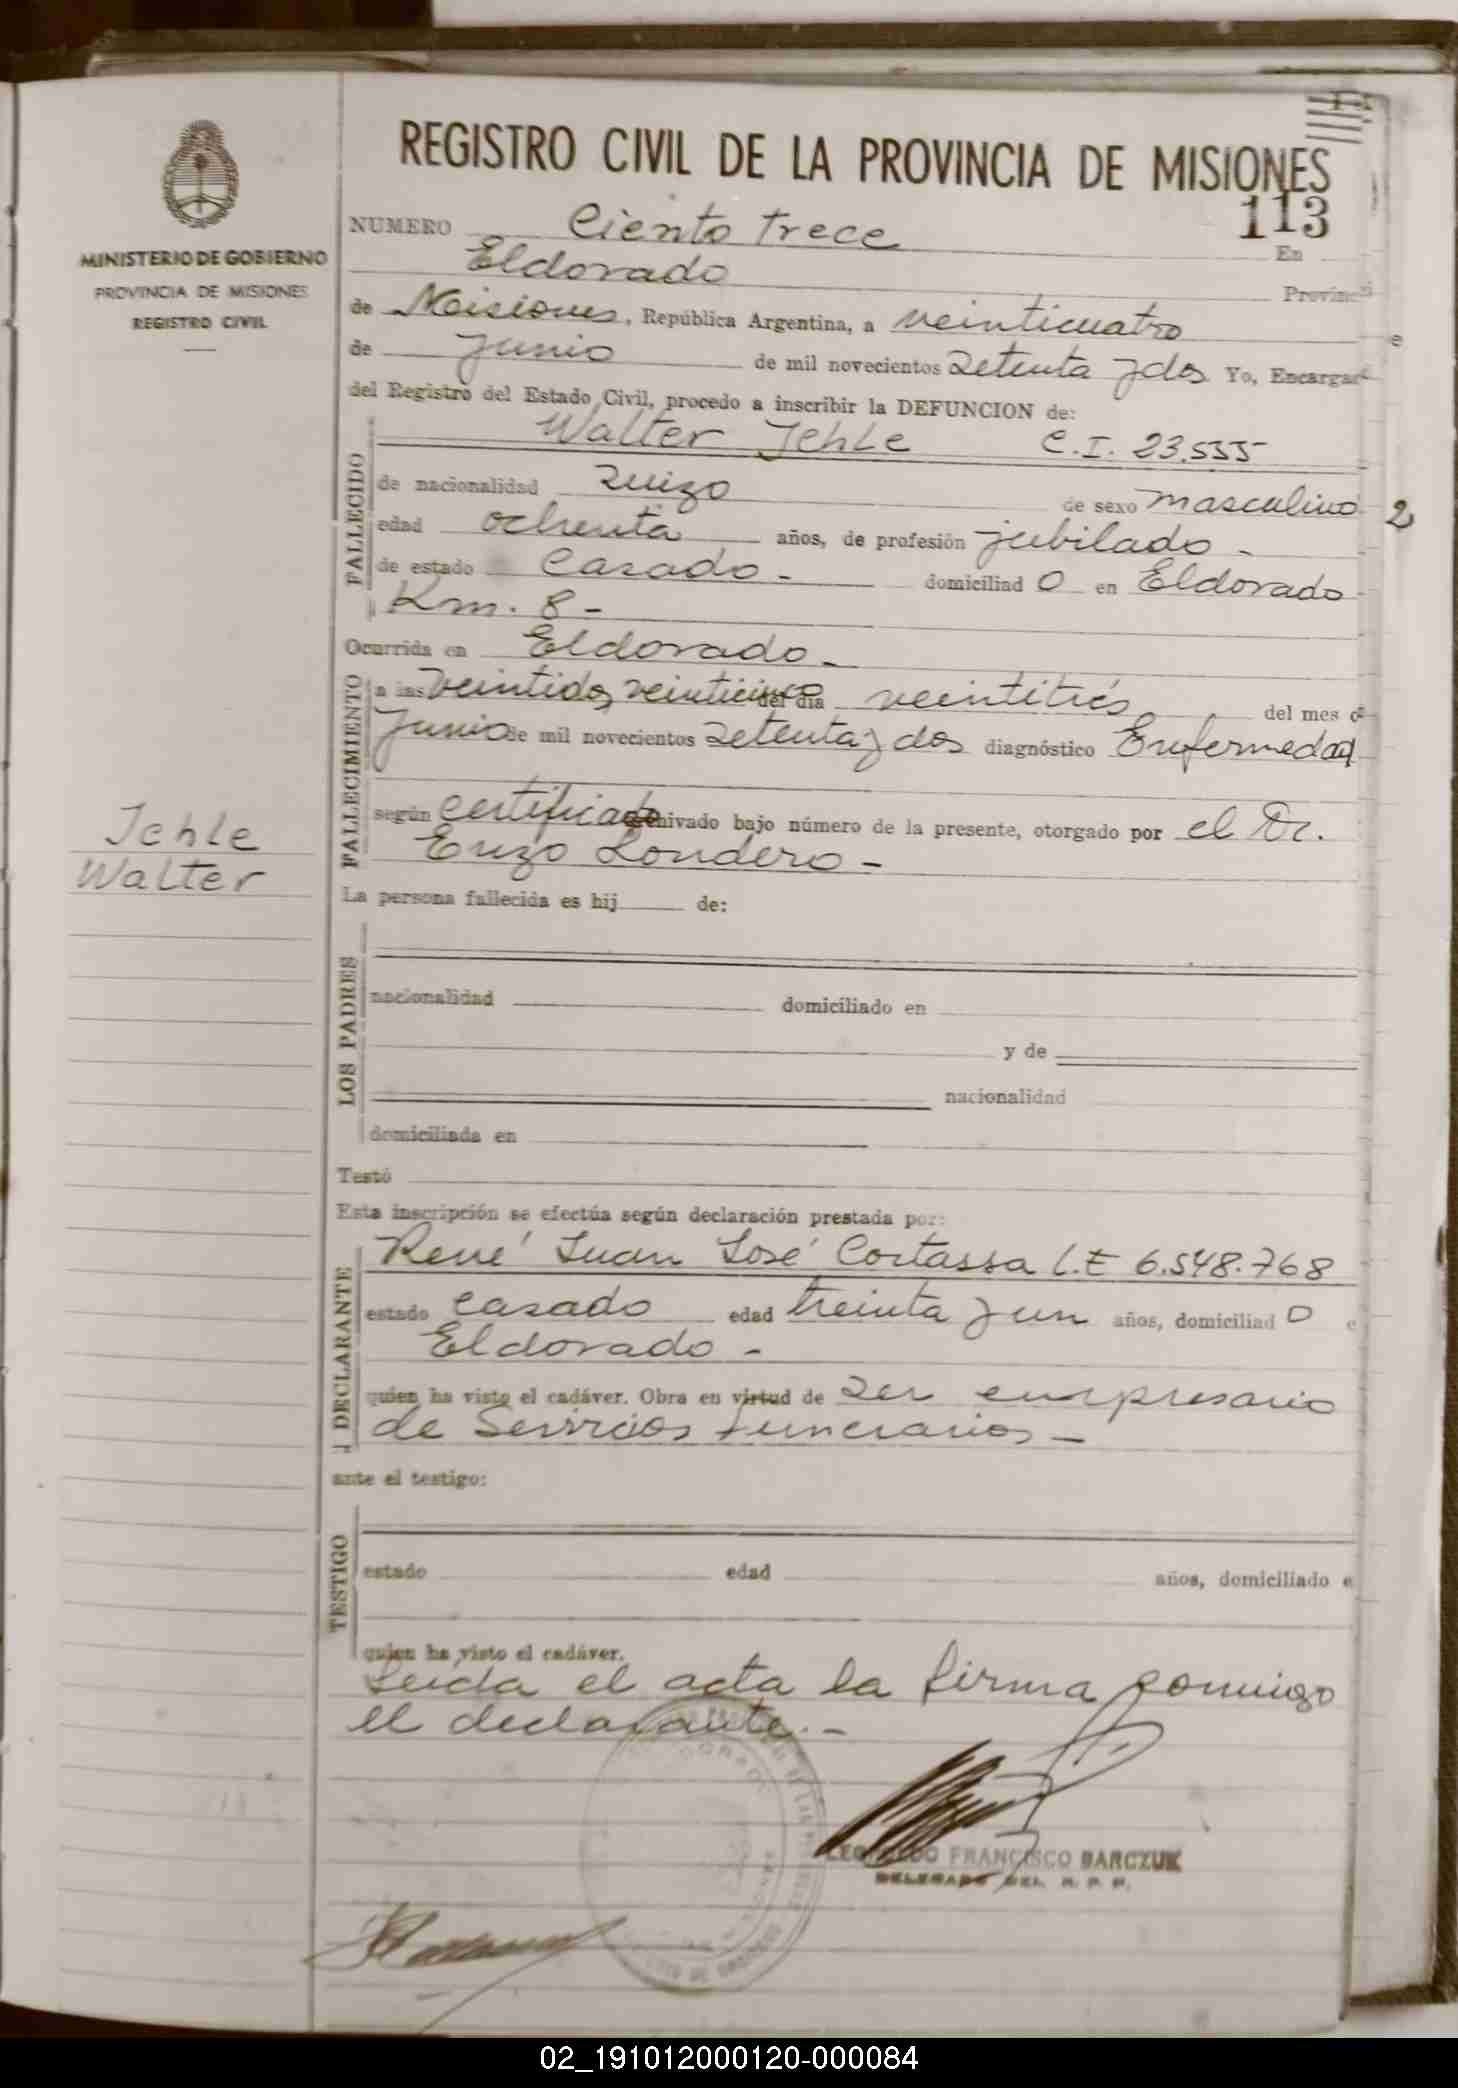 REGISTRO CIVIL DE LA PROVINCIA DE MISIONES
113
MINISTERIO DE GOBIERNO
PROVINCIA DE MISIONES
REGISTRO CIVIL
NUMERO Ciento trece En
Eldorado Provinci
de Misiones, República Argentina, a veinticuatro
de Junio de mil novecientos setenta y dos Yo, Encargad
del Registro del Estado Civil, procedo a inscribir la DEFUNCION de:
FALLECIDO
Walter Jehle C.I. 23.555
de nacionalidad Suizo de sexo masculino
2
edad ochenta años, de profesión jubilado -
de estado Casado - domiciliad o en Eldorado
Km. 8 -
Ocurrida en Eldorado -
FALLECIMIENTO
a las veintidos veinticinco del dia veintitrés del mes d
Junio de mil novecientos setenta y dos diagnóstico Enfermedad
según certificado archivado bajo número de la presente, otorgado por el Dr.
Enzo Londero -
Jehle
Walter
La persona fallecida es hij de:
LOS PADRES
nacionalidad domiciliado en
y de
nacionalidad
domiciliada en
Testó
Esta inscripción se efectúa según declaración prestada por:
DECLARANTE
René Juan José Cortassa L.E 6.548.768
estado casado edad treinta y un años, domiciliad o e
Eldorado -
quien ha visto el cadáver. Obra en virtud de ser empresario
de Servicios funerarios -
ante el testigo:
TESTIGO
estado edad años, domiciliado e
quien ha visto el cadáver.
Leida el acta la firma conmigo
el declarante. -
FRANCISCO BARCZUK
DELEGADO DEL R. P. P.
02_191012000120-000084